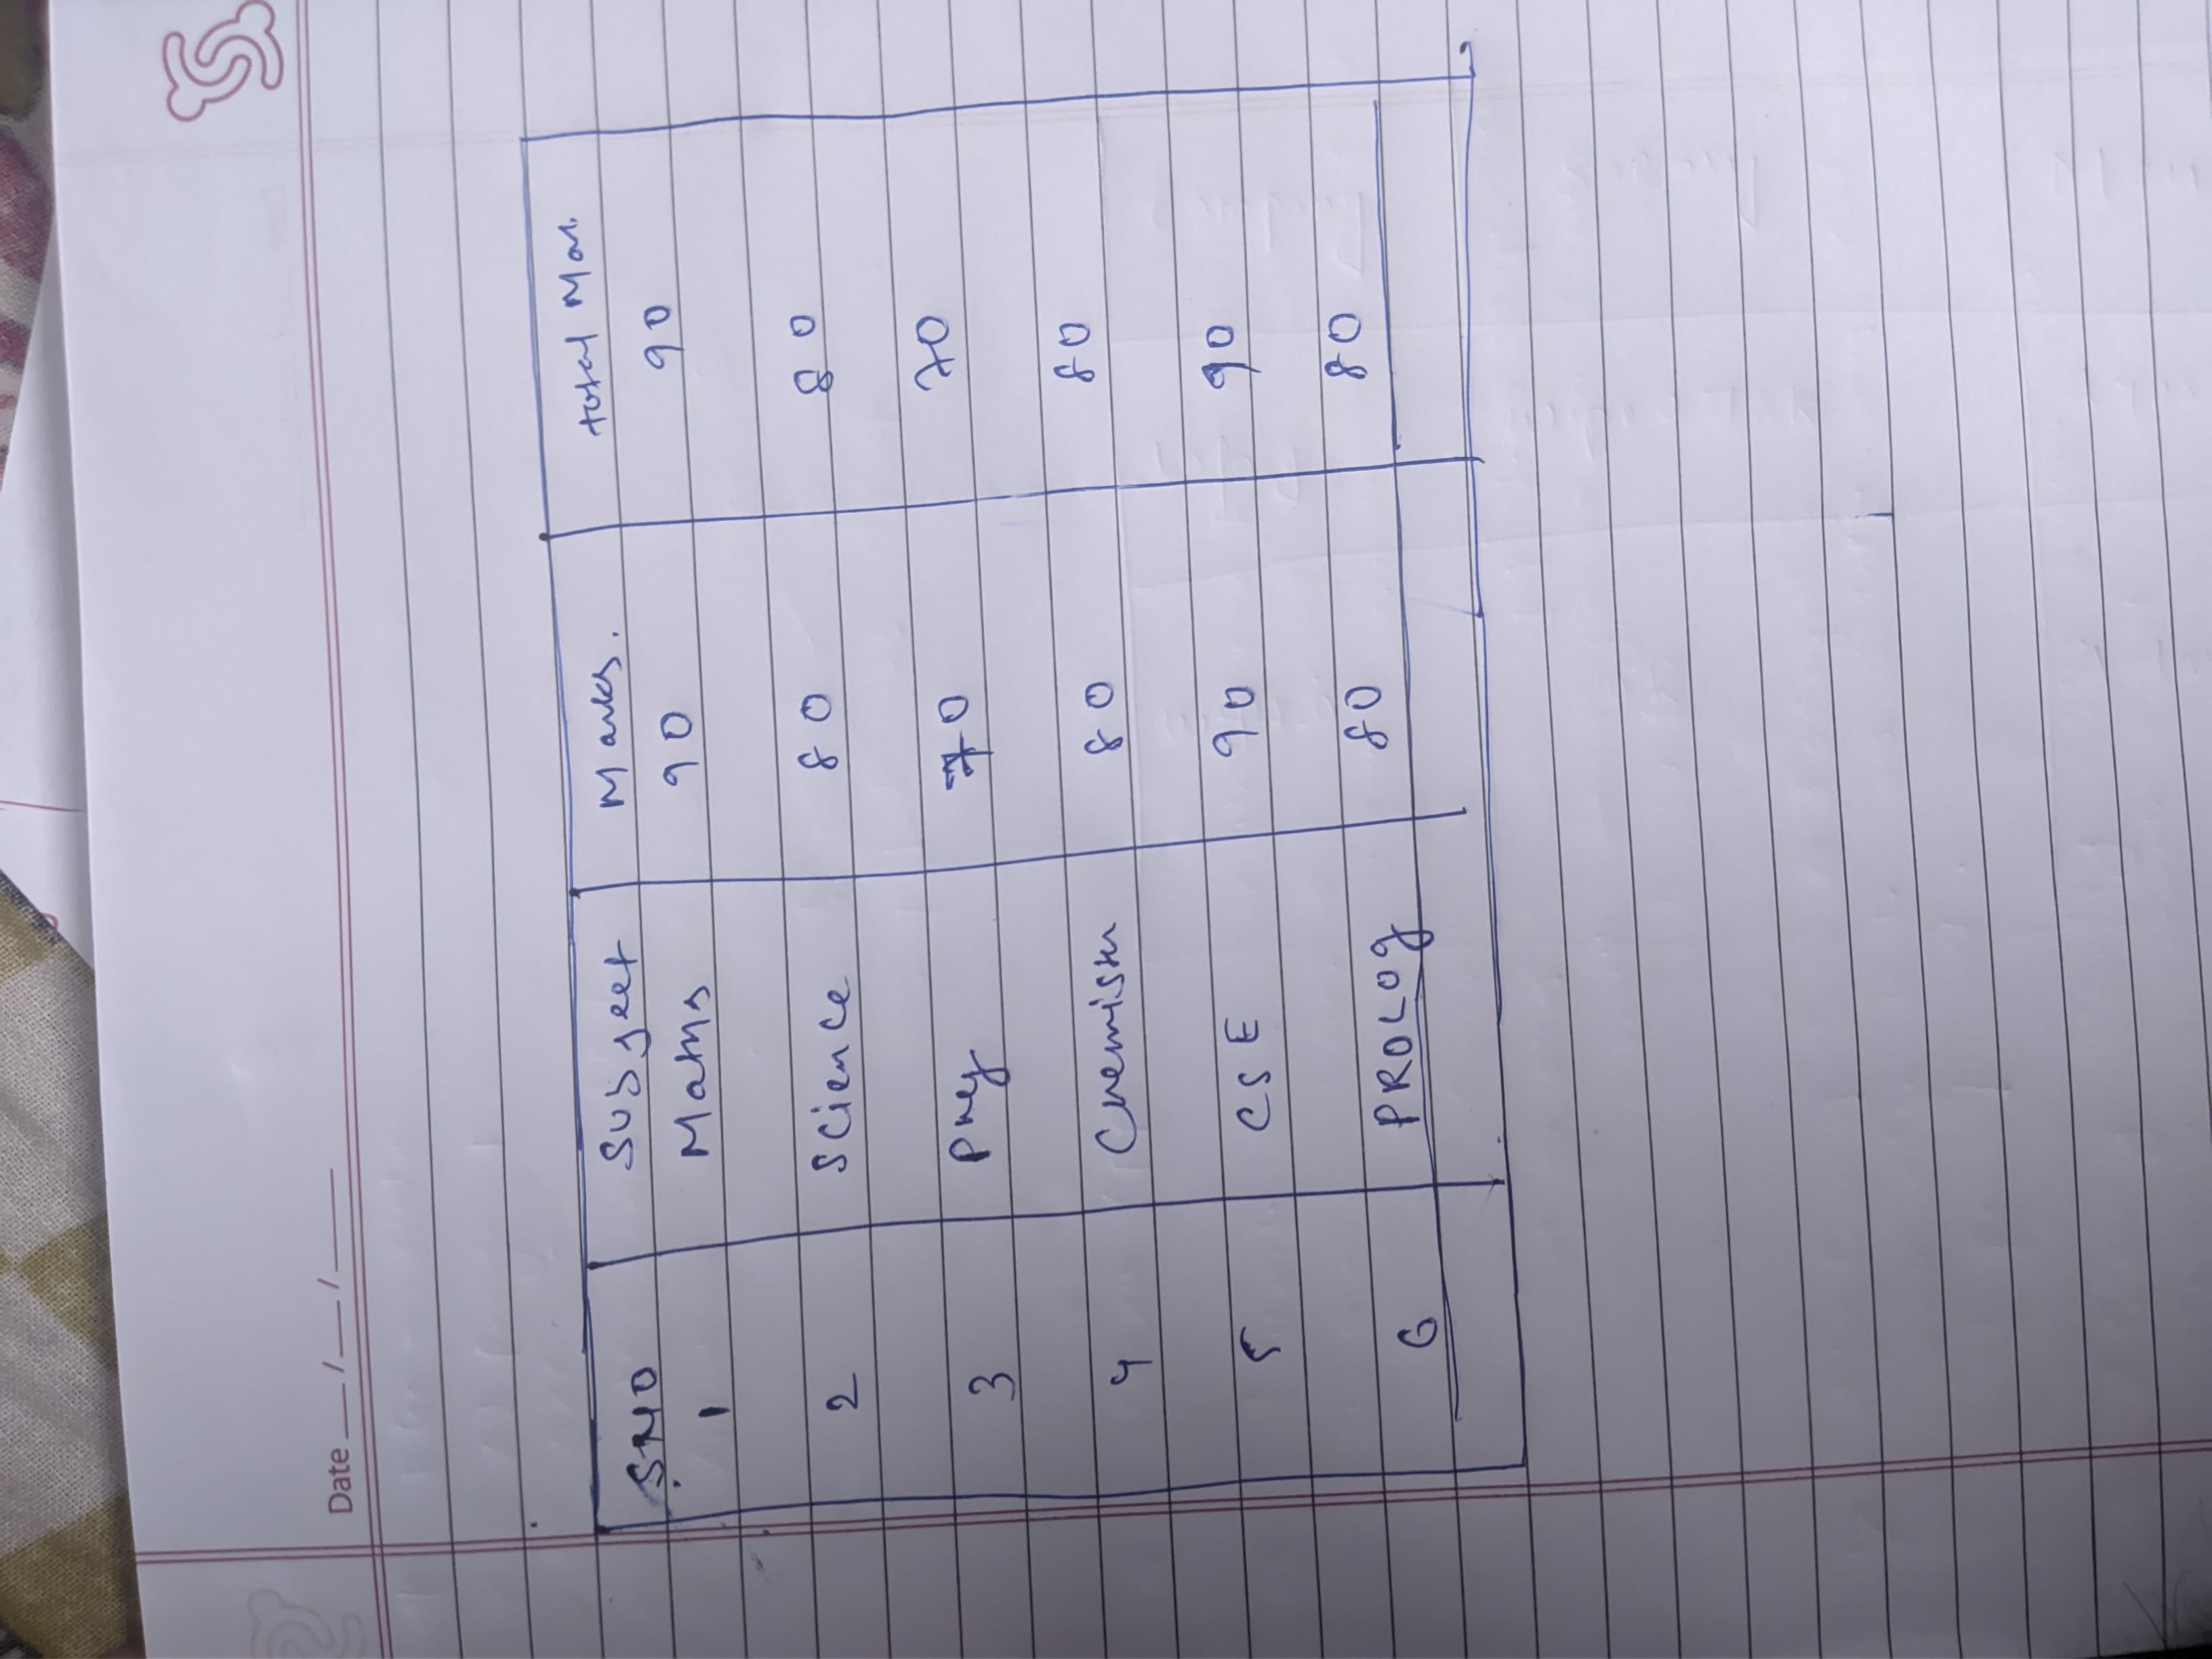 Date __/__/__
SNO Subject Marks. total Mar.
1 Maths 90 90
2 Science 80 80
3 Phy 70 70
4 Chemistr 80 80
5 CSE 90 90
6 PROLOg 80 80